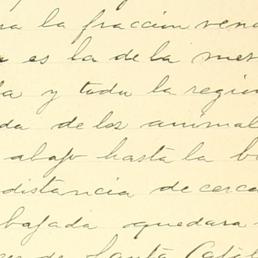 la fraccion ven
es la de la mer
la y toda la region
da de los animal
abajo hasta la b
distancia de cerca
bajada quedara
de Santa Catal